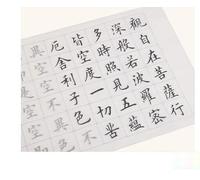 觀自在菩薩行
深般若波羅密
多時照見五蘊
皆空度一切苦
厄舍利子色不
異空空不